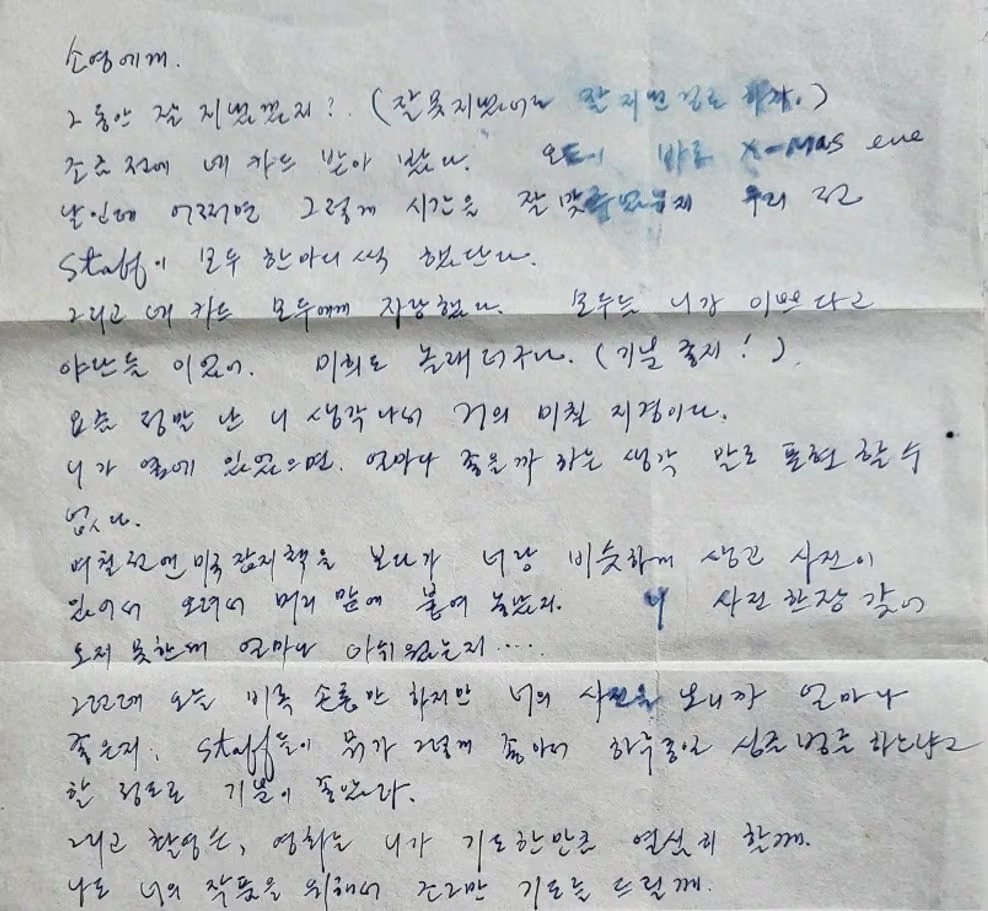 소영에게.
그동안 잘 지냈겠지? (잘못지냈더라도 잘 지낸걸로 하자.)
조금 전에 네 카드 받아 봤다. 오늘이 바로 X-Mas eve
날인데 어쩌면 그렇게 시간을 잘 맞추었는지 우리 전
staff이 모두 한마디씩 했단다.
그리고 네 카드 모두에게 자랑했다. 모두들 니가 이쁘다고
야단들 이었어. 미희도 놀래더구나. (기분 좋지!).
요즘 정말 난 니 생각나서 거의 미칠 지경이다.
니가 옆에 있었으면. 얼마나 좋을까 하는 생각 말로 표현 할 수
없다.
며칠전엔 미국잡지책을 보다가 너랑 비슷하게 생긴 사진이
있어서 오려서 머리 맡에 붙여 놨는지. 니 사진 한장 갖고
오지 못한게 얼마나 아쉬웠는지....
그런데 오늘 비록 손톱만 하지만 너의 사진을 보니까 얼마나
좋은지. staff들이 뭐가 그렇게 좋아서 하루종일 싱글벙글 하느냐고
할 정도로 기분이 좋았다.
그리고 촬영은, 영화는 니가 기도한만큼 열심히 할께.
나도 너의 작품을 위해서 기도를 드릴께.